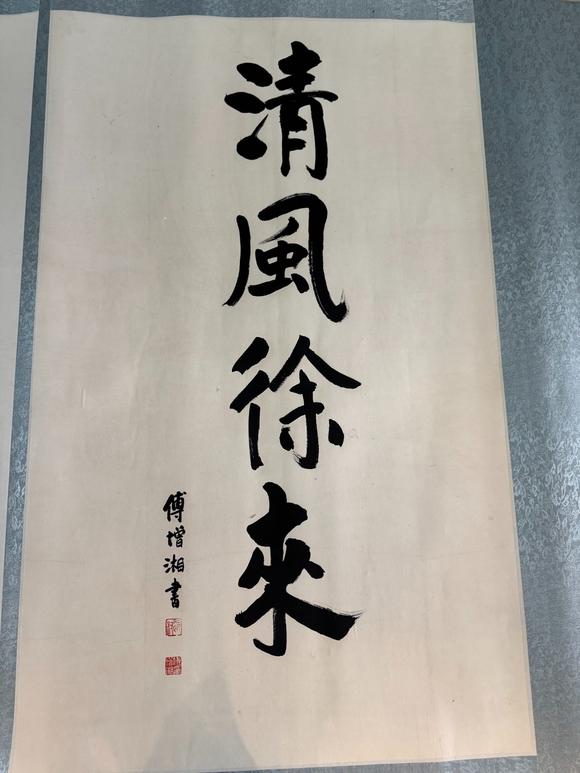 清風徐來
傅增湘書